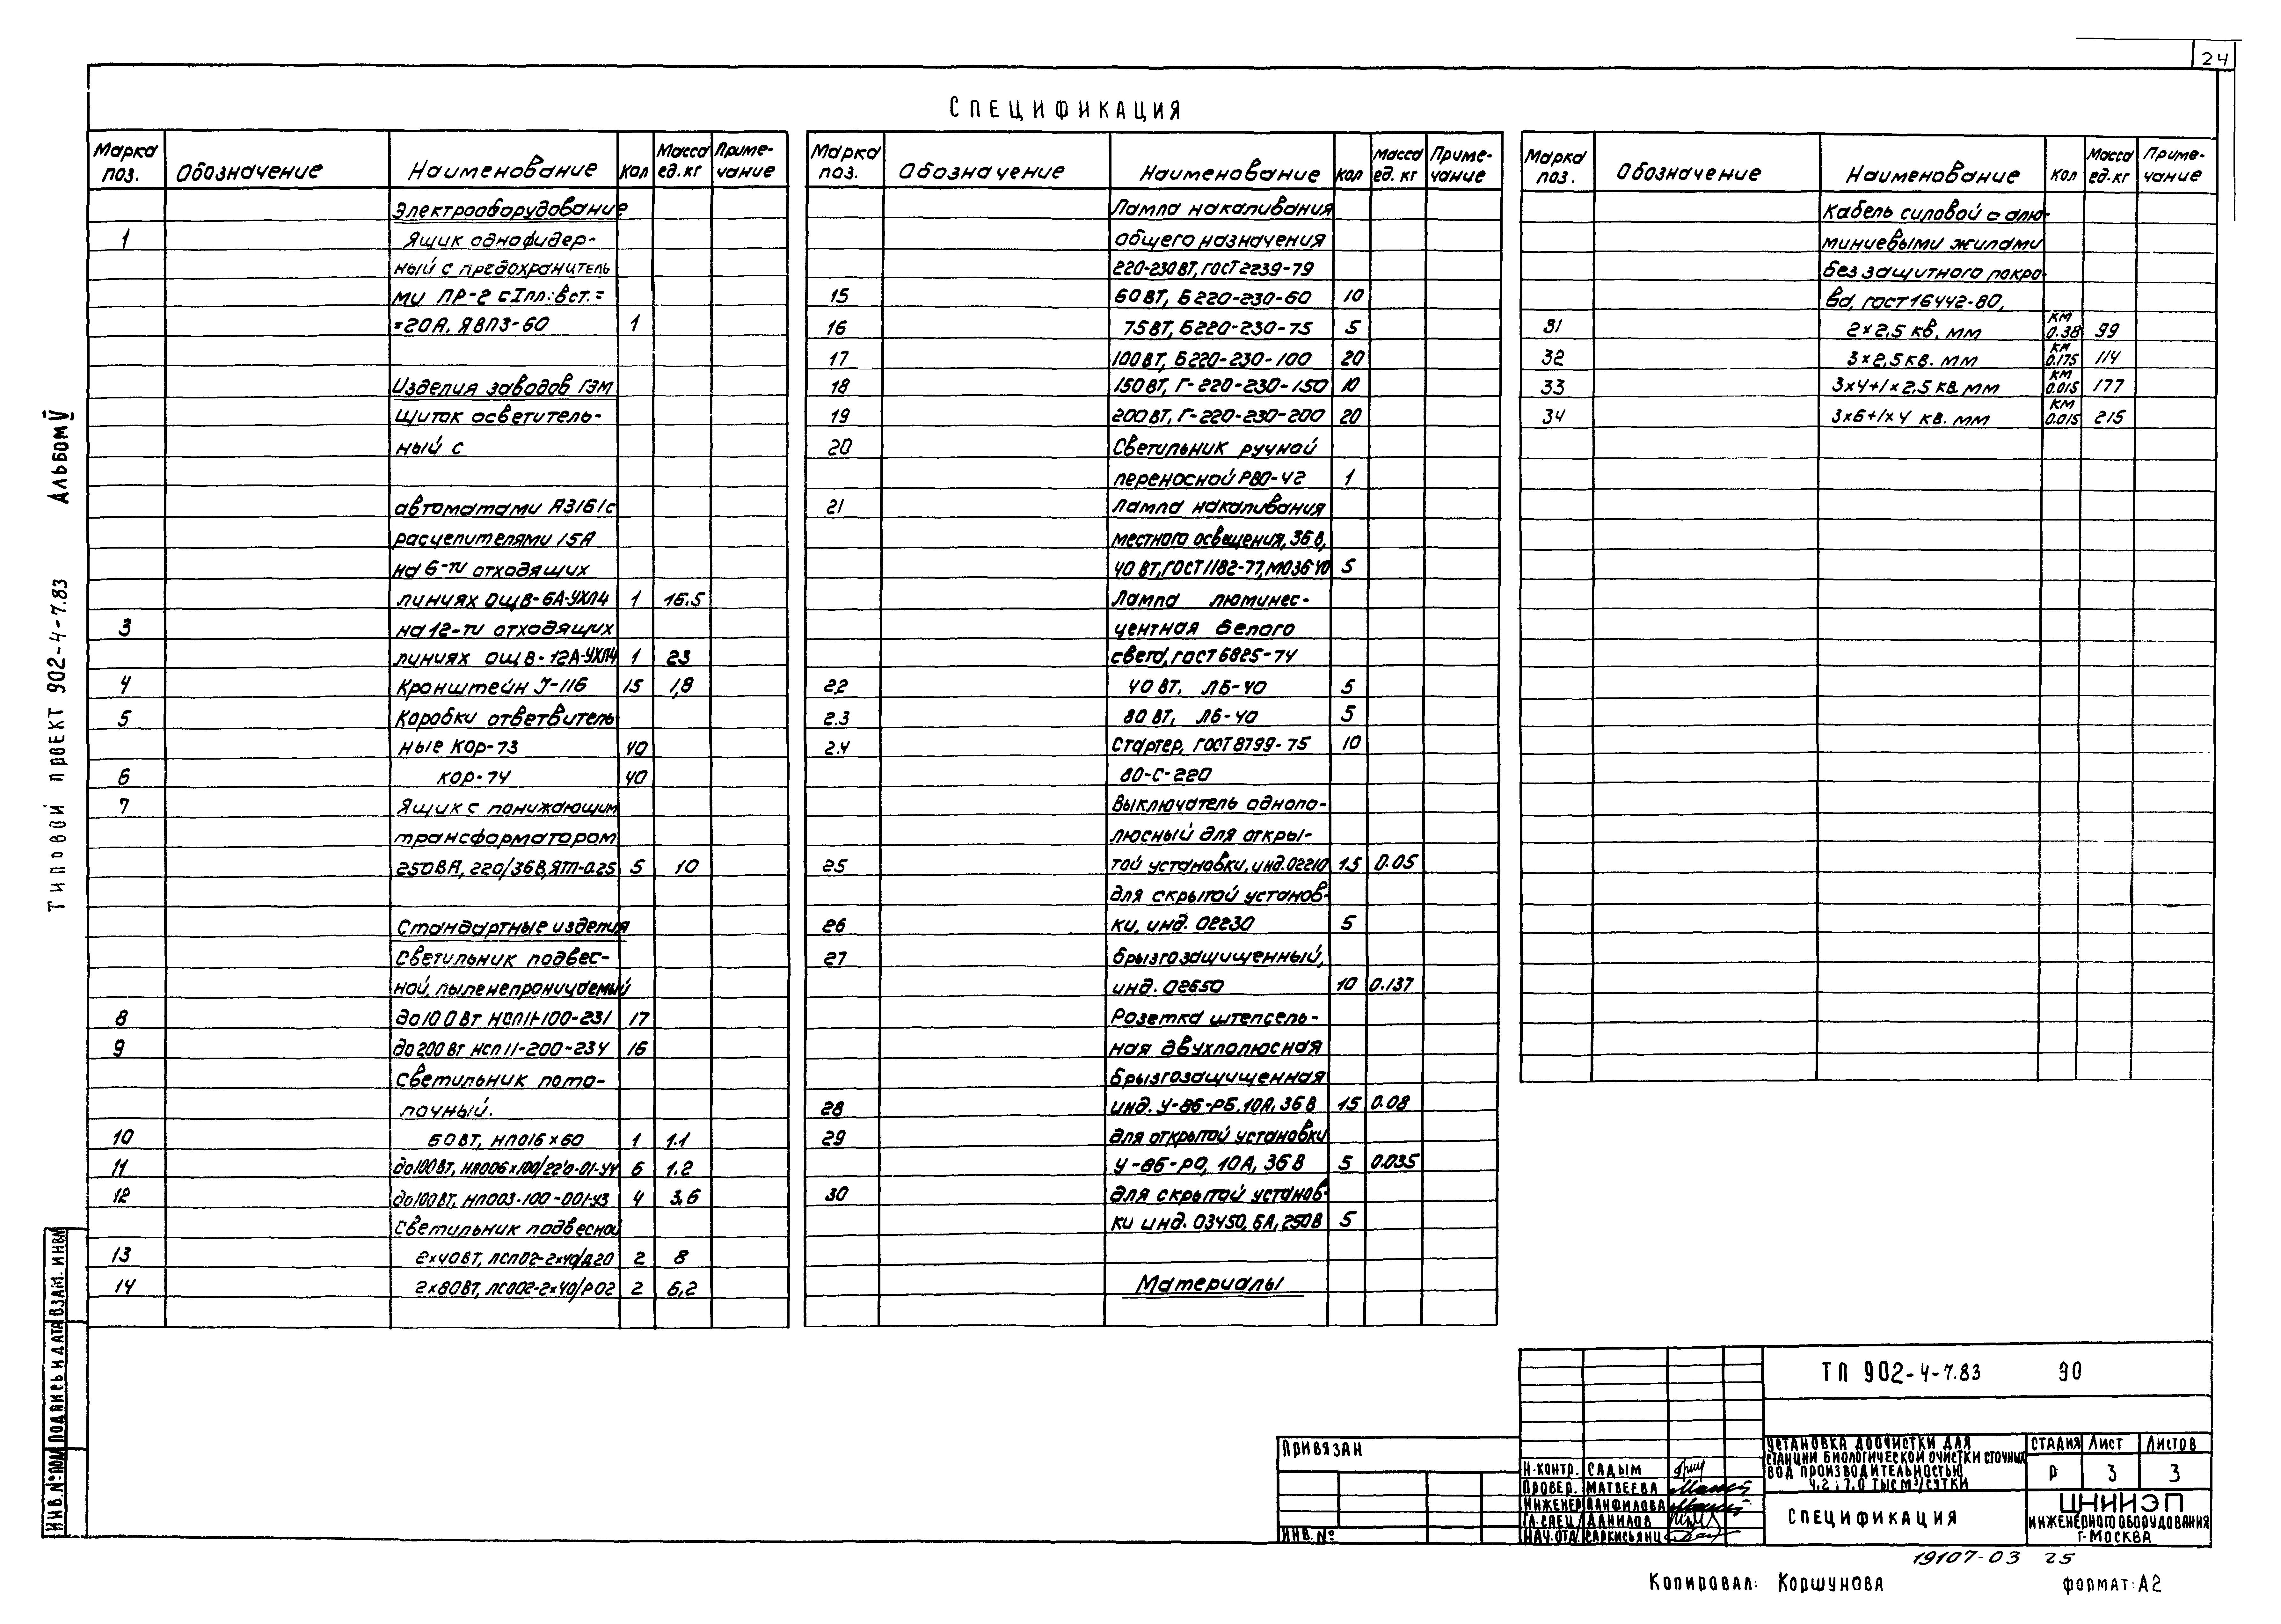 24
СПЕЦИФИКАЦИЯ
Марка поз. Обозначение Наименование Кол Масса ед. кг Приме-чание
Электрооборудование
1 Ящик однофидер-
ный с предохранитель
ми ПР-2 с Iпл.вст.=
=20А, ЯВПЗ-60 1
Изделия заводов ГЭМ
Щиток осветитель-
ный с
автоматами А3161 с
расцепителями 15А
на 6-ти отходящих
линиях ОЩВ-6А-УХЛ4 1 16,5
3 на 12-ти отходящих
линиях ОЩВ-12А-УХЛ4 1 23
4 Кронштейн У-116 15 1,8
5 Коробки ответвитель
ные Кор-73 40
6 Кор-74 40
7 Ящик с понижающим
трансформатором
250ВА, 220/36В, ЯТП-0.25 5 10
Стандартные изделия
Светильник подвес-
ной, пыленепроницаемый
8 до 100 Вт НСП11-100-231 17
9 до 200 Вт НСП11-200-234 16
Светильник пото-
лочный.
10 60 Вт, НПО16×60 1 1.1
11 до 100 Вт, НПО06×100/220-01-У4 6 1.2
12 до 100 Вт, НПО03-100-001-У3 4 3,6
Светильник подвесной
13 2×40 Вт, ЛСП02-2×40/Д20 2 8
14 2×80 Вт, ЛСО02-2×40/Р02 2 6,2
Марка поз. Обозначение Наименование Кол Масса ед. кг Приме-чание
Лампа накаливания
общего назначения
220-230 ВТ, ГОСТ 2239-79
15 60 Вт, Б220-230-60 10
16 75 Вт, Б220-230-75 5
17 100 Вт, Б220-230-100 20
18 150 Вт, Г-220-230-150 10
19 200 Вт, Г-220-230-200 20
20 Светильник ручной
переносной РВО-42 1
21 Лампа накаливания
местного освещения, 36 В,
40 Вт, ГОСТ 1182-77, МО36 40 5
Лампа люминес-
центная белого
света, ГОСТ 6825-74
22 40 Вт, ЛБ-40 5
23 80 Вт, ЛБ-40 5
24 Стартер, ГОСТ 8799-75 10
80-С-220
Выключатель однопо-
люсный для откры-
25 той установки, инд. 02210 15 0.05
для скрытой установ-
26 ки, инд. 02230 5
27 брызгозащищенный,
инд. 02650 10 0.137
Розетка штепсель-
ная двухполюсная
брызгозащищенная
28 инд. У-86-РБ, 10А, 36 В 15 0.08
29 для открытой установки
У-86-РО, 10А, 36 В 5 0.035
30 для скрытой установ-
ки инд. 03450, 6А, 250В 5
Материалы
Марка поз. Обозначение Наименование Кол Масса ед. кг Приме-чание
Кабель силовой с алю-
миниевыми жилами
без защитного покро
ва, ГОСТ 16442-80,
31 2×2,5 кв. мм км 0.38 99
32 3×2,5 кв. мм км 0.175 114
33 3×4+1×2,5 кв. мм км 0.015 177
34 3×6+1×4 кв. мм км 0.015 215
Альбом V
ТИПОВОЙ ПРОЕКТ 902-4-7.83
ИНВ.№ПОДЛ ПОДПИСЬ И ДАТА ВЗАМ. ИНВ№
ПРИВЯЗАН
ИНВ. №
Н.КОНТР. САДЫМ
ПРОВЕР. МАТВЕЕВА
ИНЖЕНЕР ПАНФИЛОВА
ГЛ.СПЕЦ ДАНИЛОВ
НАЧ.ОТД. САРКИСЬЯНЦ
ТП 902-4-7.83 ЭО
УСТАНОВКА ДООЧИСТКИ ДЛЯ
СТАНЦИИ БИОЛОГИЧЕСКОЙ ОЧИСТКИ СТОЧНЫХ
ВОД ПРОИЗВОДИТЕЛЬНОСТЬЮ
4,2; 7,0 ТЫС М³/СУТКИ
СТАДИЯ ЛИСТ ЛИСТОВ
Р 3 3
СПЕЦИФИКАЦИЯ
ЦНИИЭП
ИНЖЕНЕРНОГО ОБОРУДОВАНИЯ
Г. МОСКВА
19107-03 25
КОПИРОВАЛ: КОРШУНОВА ФОРМАТ: А2